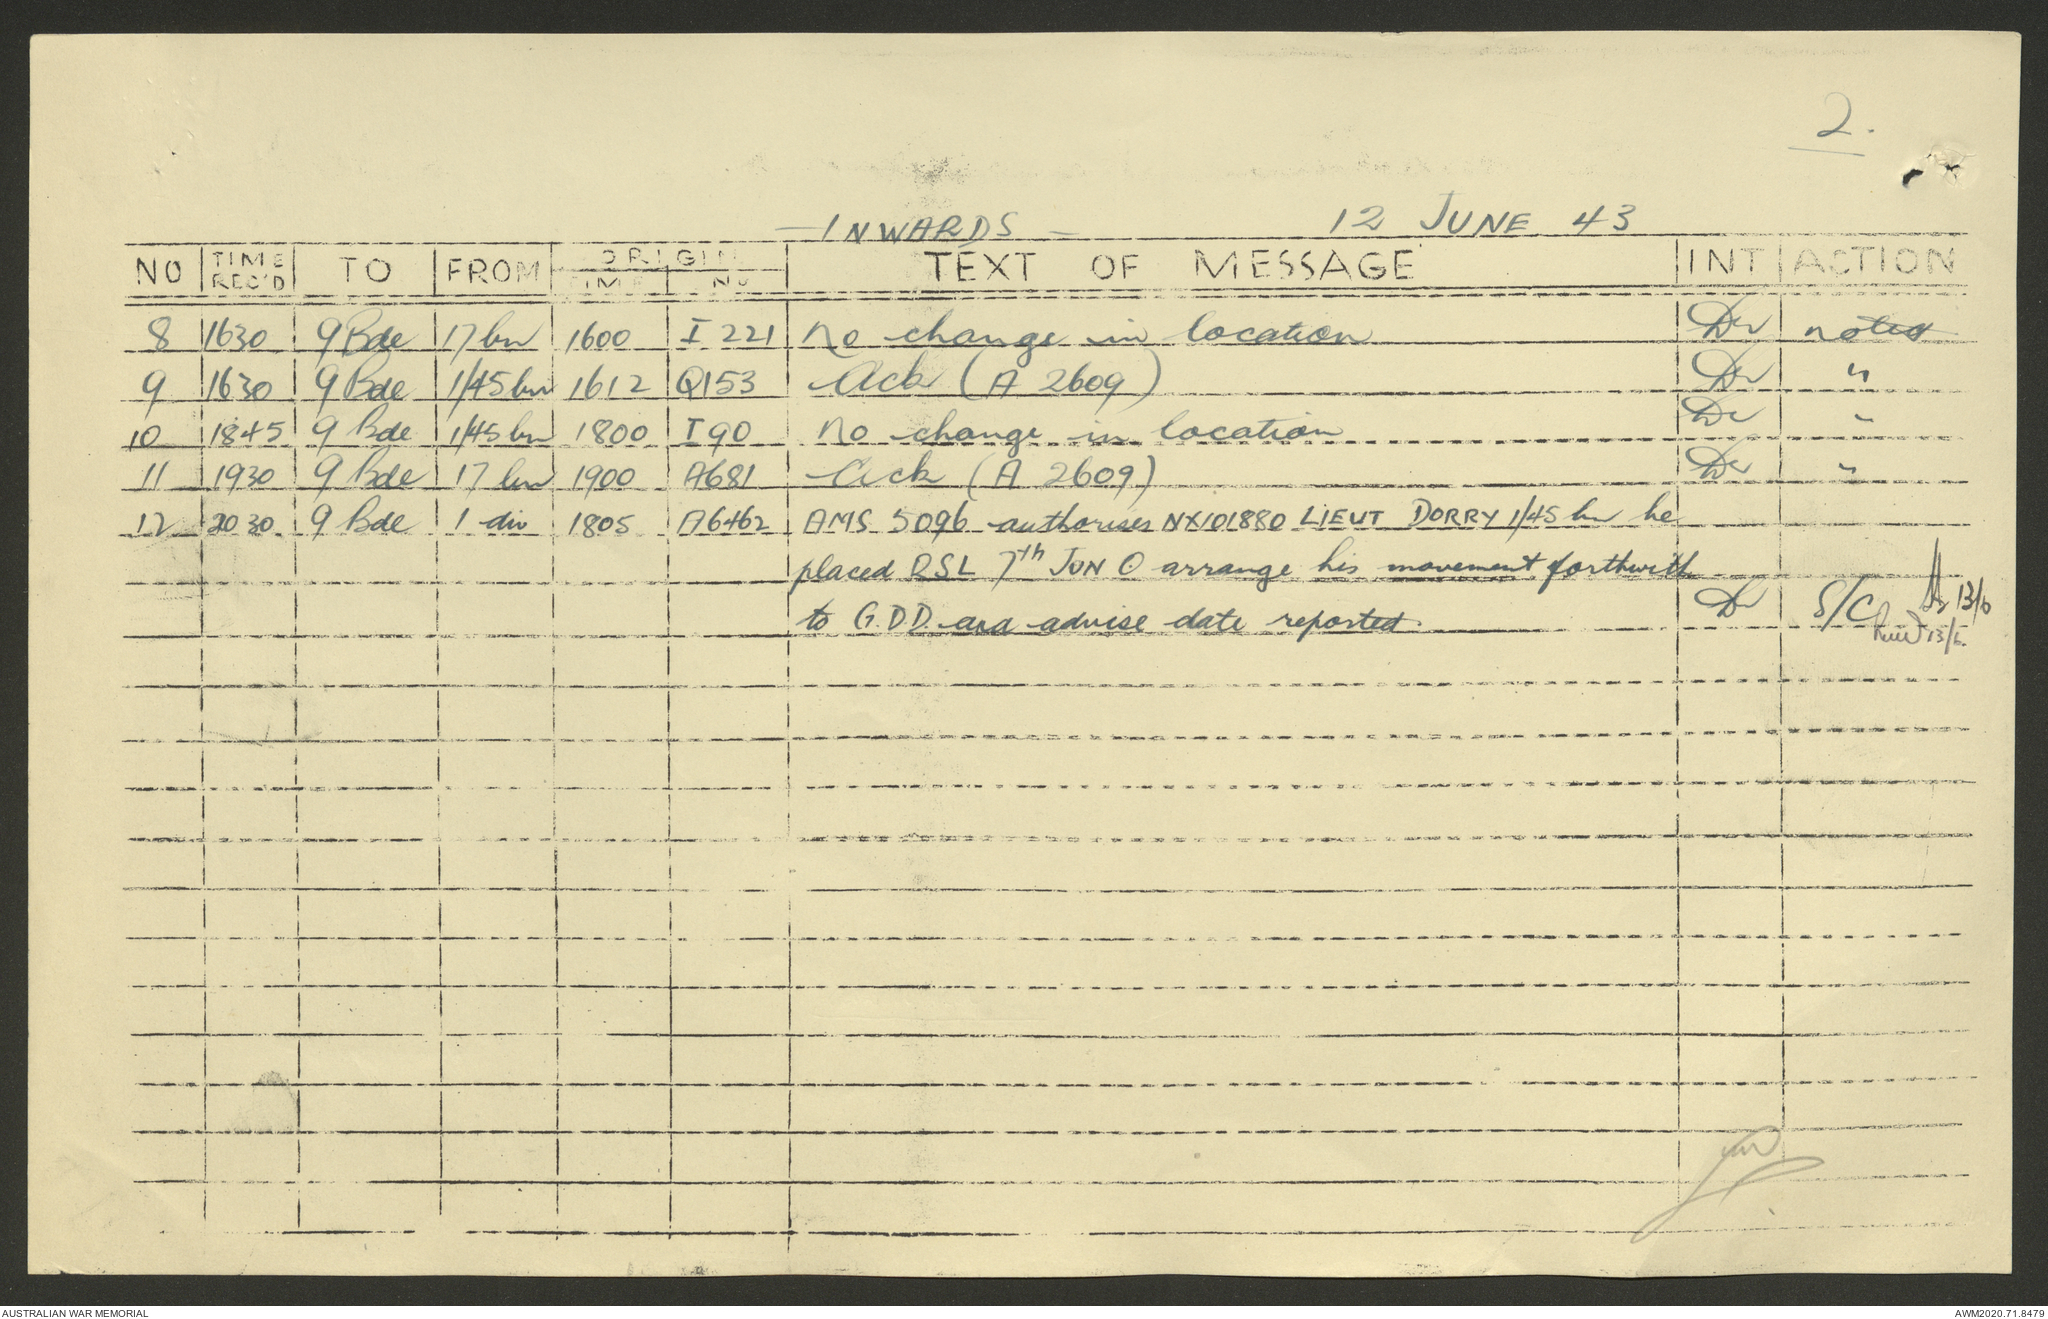 2.
- INWARDS - 12 JUNE 43
NO TIME REC'D TO FROM ORIGIN TIME NO TEXT OF MESSAGE INT ACTION
8 1630 9 Bde 17 bn 1600 I 221 No change in location noted
9 1630 9 Bde 1/45 bn 1612 Q153 Ack (A 2609) "
10 1845 9 Bde 1/45 bn 1800 I 90 No change in location "
11 1930 9 Bde 17 bn 1900 A681 Ack (A 2609) "
12 2030 9 Bde 1 div 1805 A6462 AMS 5096 authorises NX101880 LIEUT DORRY 1/45 bn be
placed RSL 7th JUN O arrange his movement forthwith
to G.D.D. and advise date reported. S/C 13/6
13/6
AUSTRALIAN WAR MEMORIAL AWM2020.71.8479